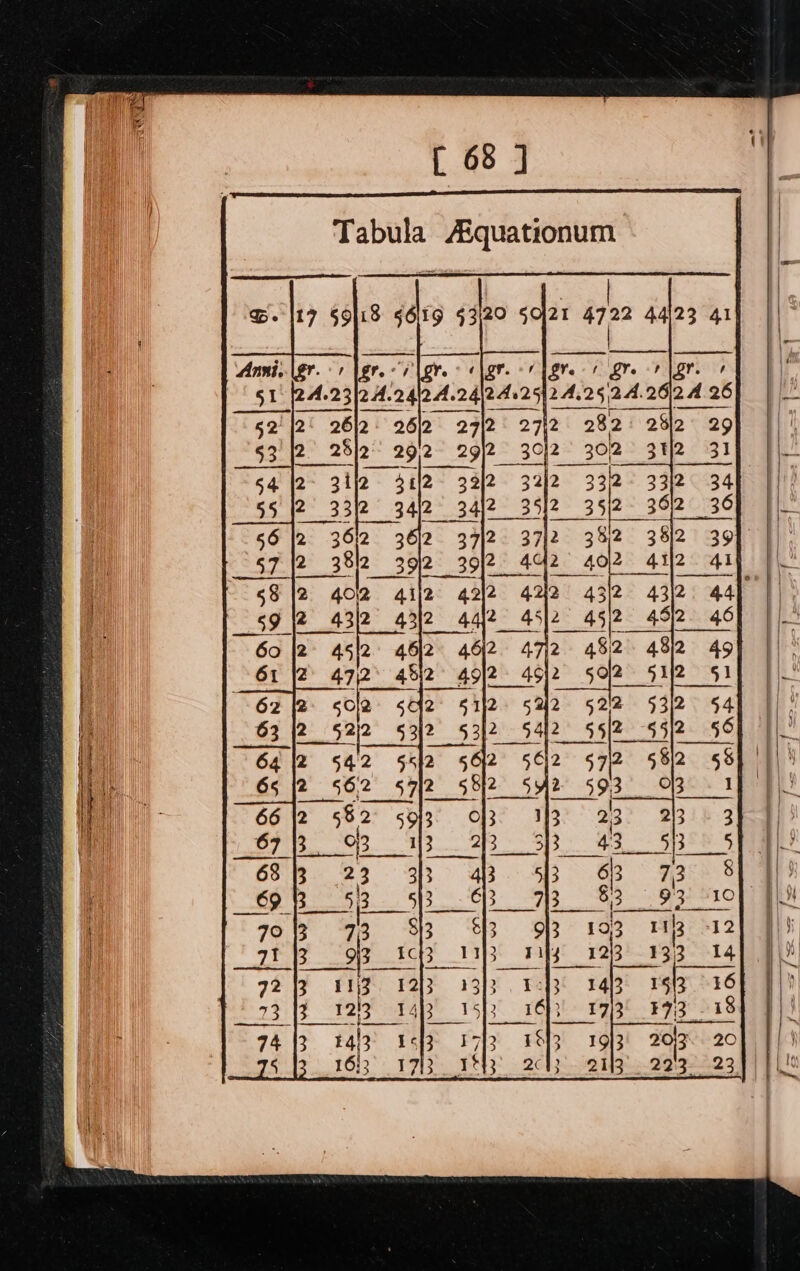 [ 68 ]
Tabula Æquationum
17 59 18 56 19 53 20 50 21 47 22 44 23 41
Anni. gr. ′ gr. ′ gr. ′ gr. ′ gr. ′ gr. ′ gr. ′
51 2A.23 2A.24 2A.24 2A.25 2A.25 2A.26 2A 26
52 2 26 2 26 2 27 2 27 2 28 2 28 2 29
53 2 28 2 29 2 29 2 30 2 30 2 31 2 31
54 2 31 2 31 2 32 2 32 2 33 2 33 2 34
55 2 33 2 34 2 34 2 35 2 35 2 36 2 36
56 2 36 2 36 2 37 2 37 2 38 2 38 2 39
57 2 38 2 39 2 39 2 40 2 40 2 41 2 41
58 2 40 2 41 2 42 2 42 2 43 2 43 2 44
59 2 43 2 43 2 44 2 45 2 45 2 46 2 46
60 2 45 2 46 2 46 2 47 2 48 2 48 2 49
61 2 47 2 48 2 49 2 49 2 50 2 51 2 51
62 2 50 2 50 2 51 2 52 2 52 2 53 2 54
63 2 52 2 53 2 53 2 54 2 55 2 55 2 56
64 2 54 2 55 2 56 2 56 2 57 2 58 2 58
65 2 56 2 57 2 58 2 59 2 59 3 0 3 1
66 2 58 2 59 3 0 3 1 3 2 3 2 3 3
67 3 0 3 1 3 2 3 3 3 4 3 5 3 5
68 3 2 3 3 3 4 3 5 3 6 3 7 3 8
69 3 5 3 5 3 6 3 7 3 8 3 9 3 10
70 3 7 3 8 3 8 3 9 3 10 3 11 3 12
71 3 9 3 10 3 11 3 11 3 12 3 13 3 14
72 3 11 3 12 3 13 3 13 14 3 15 3 16
73 3 12 3 14 3 15 3 16 3 17 3 17 3 18
74 3 14 3 15 3 17 3 18 3 19 3 20 3 20
75 3 16 3 17 3 18 3 20 3 21 3 22 3 23